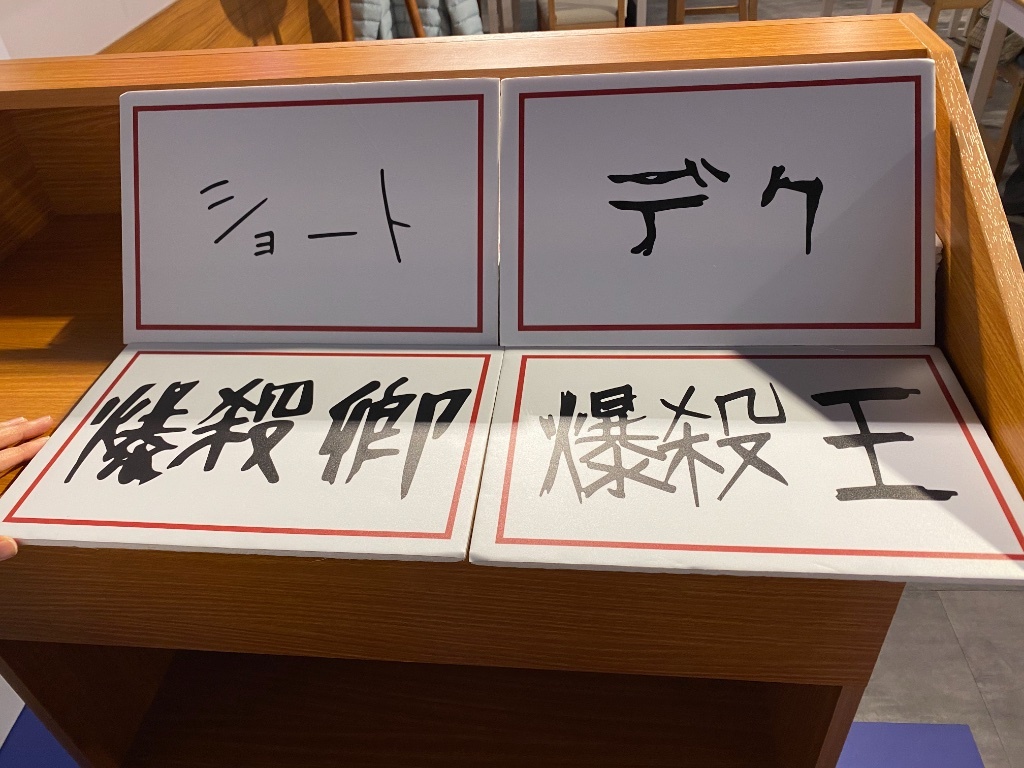 ショート
デク
爆殺卿
爆殺王